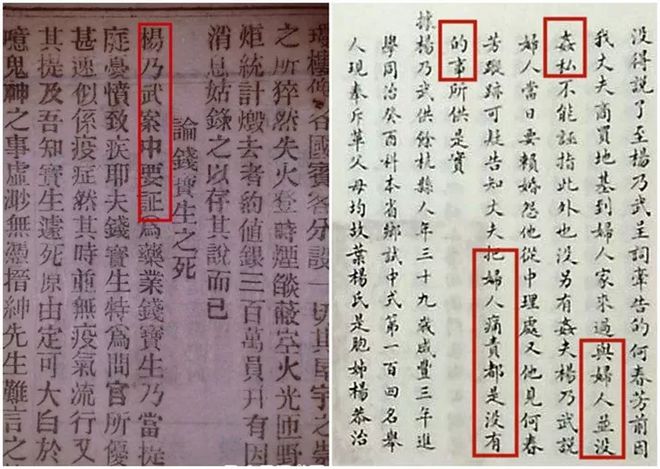 各國賓客分設一切其宇之崇
之所猝然失火登時煙燄蔽空火光匝野
炬統計燬去者約值銀三百萬員幵有因
消息姑錄之以存其說而已
論錢寶生之死
楊乃武案中要証為藥業錢寶生乃當提
庭憂憤致疾耶夫錢寶生特為問官所優
甚速似係疫症然其時並無疫氣流行又
其提及吾知寶生遽死原由定可大白於
噫鬼神之事虛渺無憑搢紳先生難言之
没得說了至楊乃武主詞牽告的何春芳前因
我丈夫商買地基到婦人家来過與婦人並没
姦私不能誣指此外也没另有姦夫楊乃武說
婦人當日要賴婚怨他從中理處又他見何春
芳蹤跡可疑告知丈夫把婦人痛責都是没有
的事所供是實
據楊乃武供餘杭縣人年三十九歲咸豐三年進
學同治癸酉科本省鄉試中式第一百四名舉
人現奉斥革父母均故葉楊氏是胞姊楊恭治